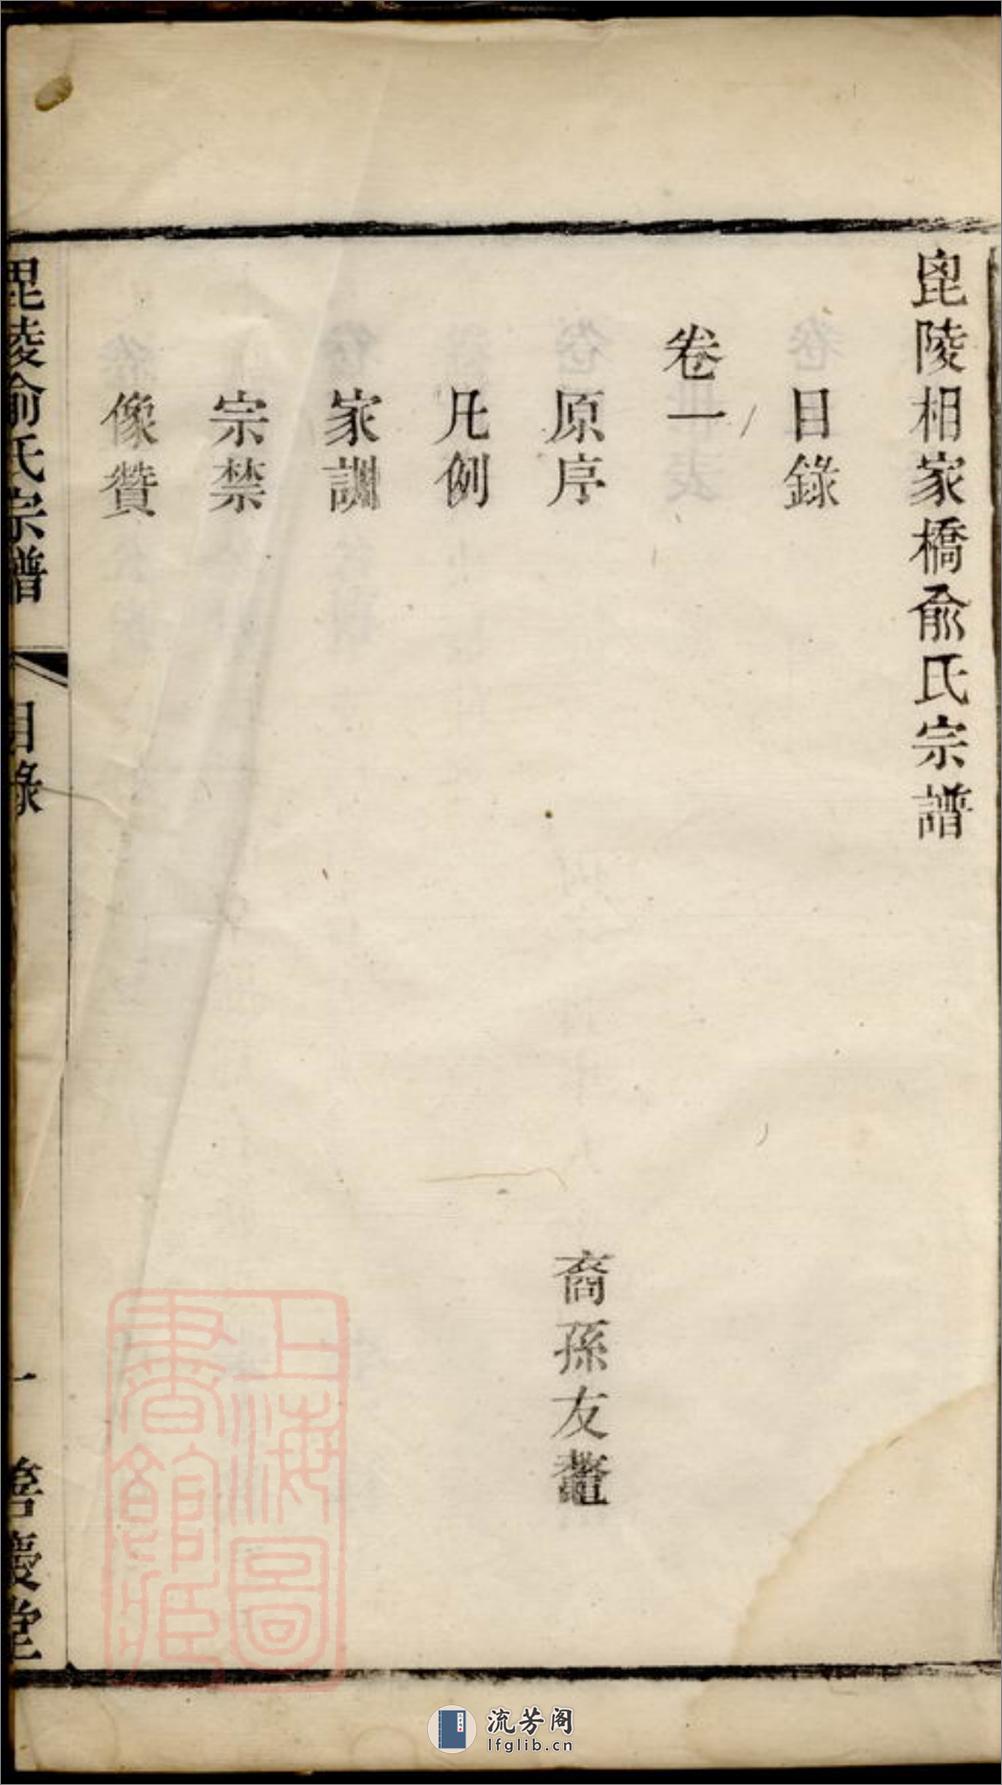 毘陵相家橋俞氏宗譜
目錄
卷一
原序
裔孫友
凡例
家訓
宗禁
像贊
毘陵俞氏宗譜
目錄
一
善慶堂
上海圖
書館藏
流芳阁
lfglib.cn